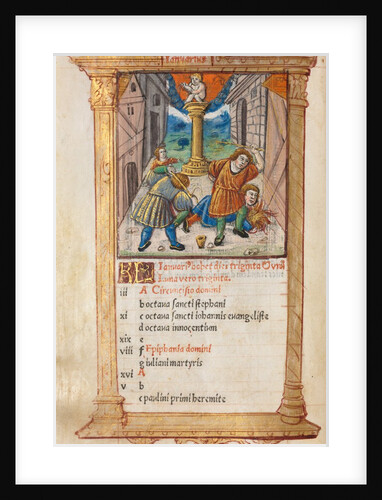 Ianuarius
Ianuari⁹ habet dies triginta Luna vero triginta.
iii A Circuncisio domini
b octaua sancti stephani
xi c octaua sancti iohannis euangeliste
d octaua innocentum
xix e
viii f Epiphania domini
g iuliani martyris
xvi A
v b
c pauli primi heremite